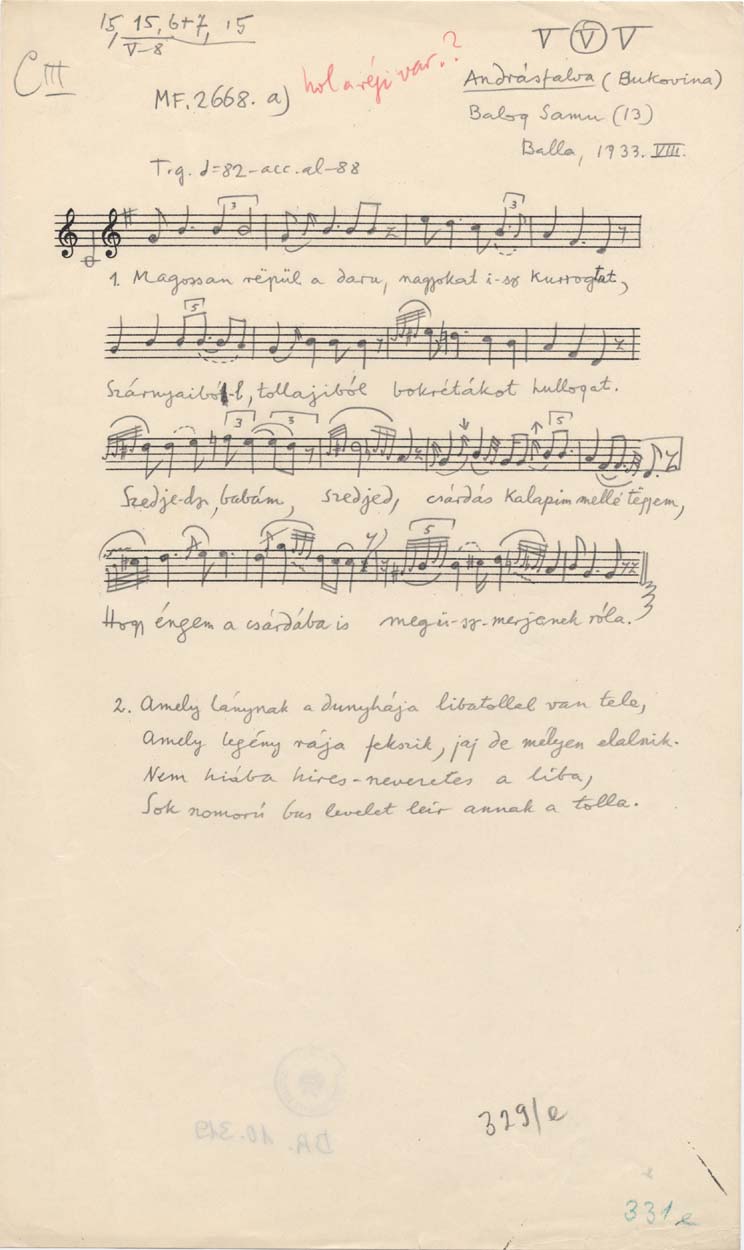 15, 15, 6+7, 15
V-8
V V V
C III
MF. 2668. a)
hol a régi var.?
Andrásfalva (Bukovina)
Balog Samu (13)
Balla, 1933. VIII.
T.g. d=82-acc.al-88
3 3
1. Magossan rëpül a daru, nagyokat i-sz kurrogtat,
5
Szárnyaiból-l, tollajiból bokrétákot hullogat.
3 3 5
Szedje-dsz, babám, szedjed, csárdás kalapim mellé tëgyem,
5
Hogy éngem a csárdába is megü-sz-merjenek róla.
2. Amely lánynak a dunyhája libatollel van tele,
Amely legény rája fekszik, jaj de mélyen elalnik.
Nem hiába hires-nevezetes a liba,
Sok nomorú bus levelet leír annak a tolla.
329/e
BA. 10.319
e
331 e